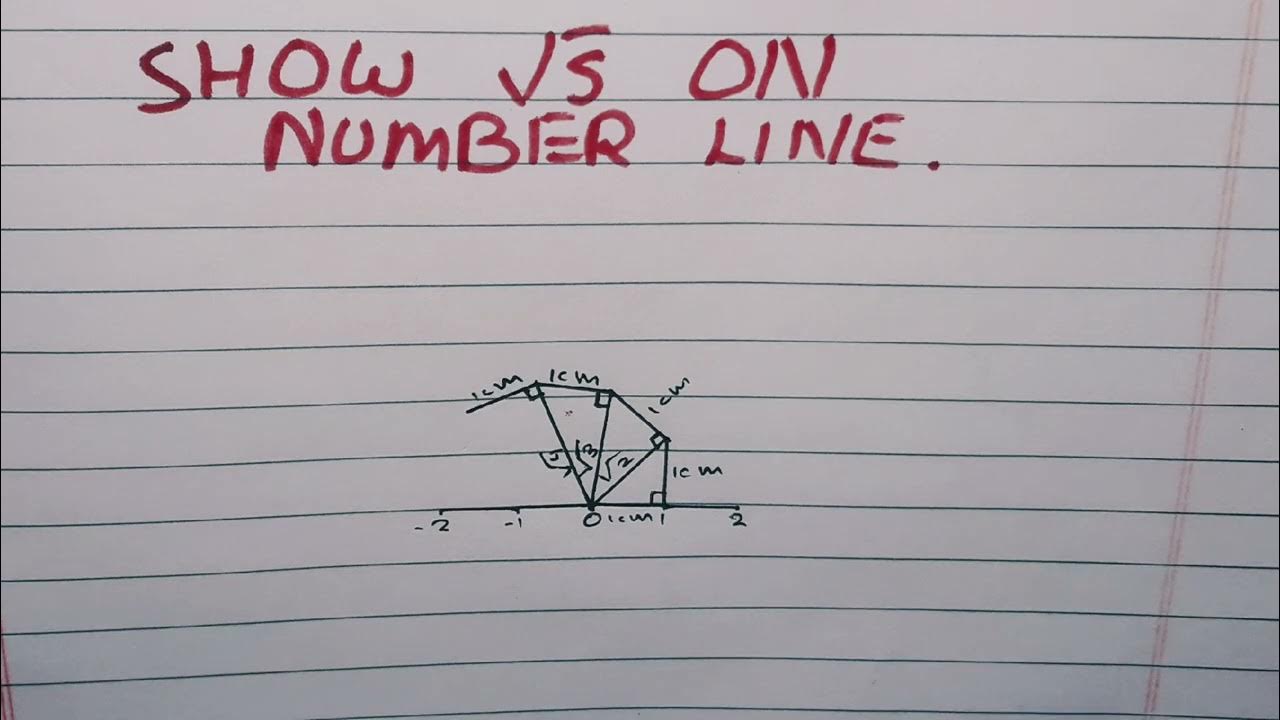 SHOW √5 ON
NUMBER LINE.
1cm 1cm 1cm
√4 √3 √2 1cm
-2 -1 0 1cm 1 2